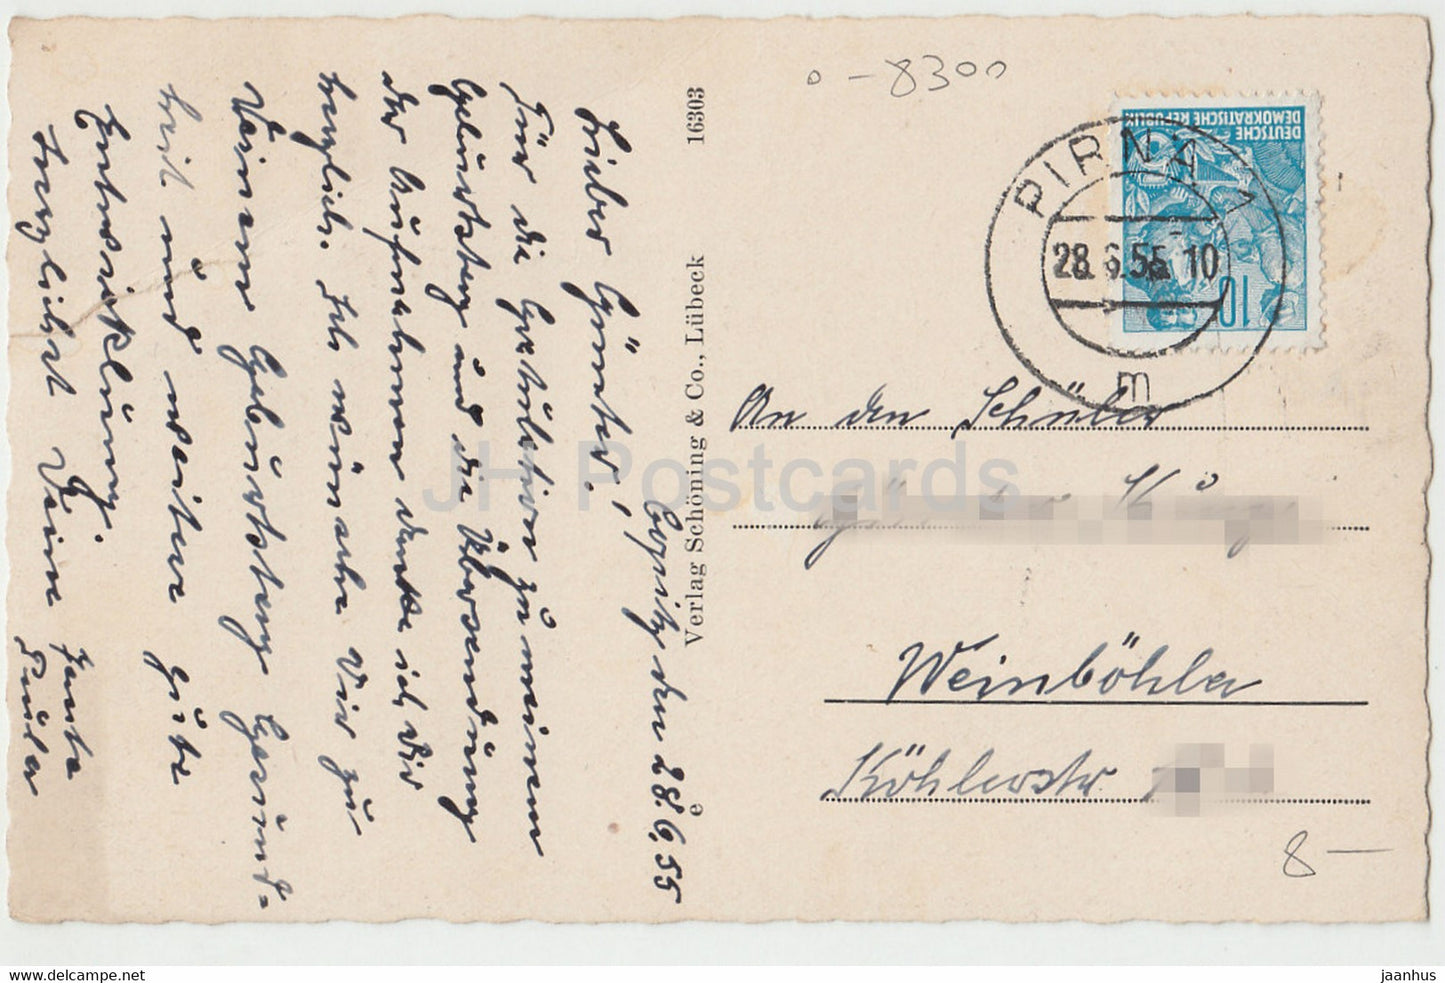 Copitz den 28.6.55
Lieber Günter!
Für die Gratulation zu meinem
Geburtstag und die Übersendung
der Aufnahmen danke ich Dir
herzlich. Ich wünsche Dir zu
Deinem Geburtstag Gesund-
heit und weiter gute
Entwicklung.
Herzlichst Deine Tante
Paula
16303
Verlag Schöning & Co., Lübeck
e
0 - 8300
DEUTSCHE
DEMOKRATISCHE REPUBLIK
10
PIRNA 1
28.6.55.-10
m
An den Schüler
Weinböhla
Köhlerstr
8 —
JH Postcards
https://delcampe.net
jaanhus